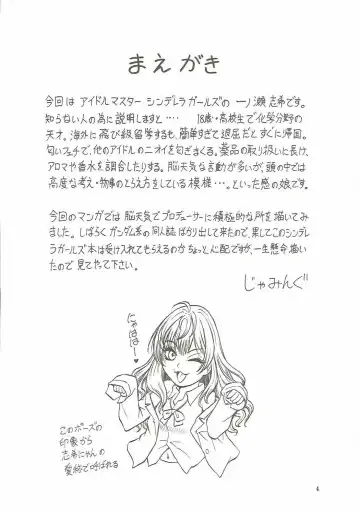 まえがき
今回は アイドルマスター シンデレラガールズの 一ノ瀬 志希です。
知らない人の為に説明しますと‥‥ 18歳・高校生で化学分野の
天才。海外に飛び級留学するも、簡単すぎて退屈だとすぐに帰国。
匂いフェチで、他のアイドルのニオイを匂ぎまくる。薬品の取り扱いに長け、
アロマや香水を調合したりする。脳天気な言動が多いが、頭の中では
高度な考え・物事のとらえ方をしている模様‥‥。といった感の娘です。
今回のマンガでは 脳天気でプロデューサーに積極的な所を描いてみ
ました。しばらく ガンダム系の同人誌ばかり出して来たので、果してこのシンデレ
ラガールズ本は受け入れてもらえるのか ちょっと心配ですが、一生懸命描い
たので 見てやって下さい。
じゃみんぐ
にゃははー♥
このポーズの
印象から
志希にゃんの
愛称で呼ばれる
4